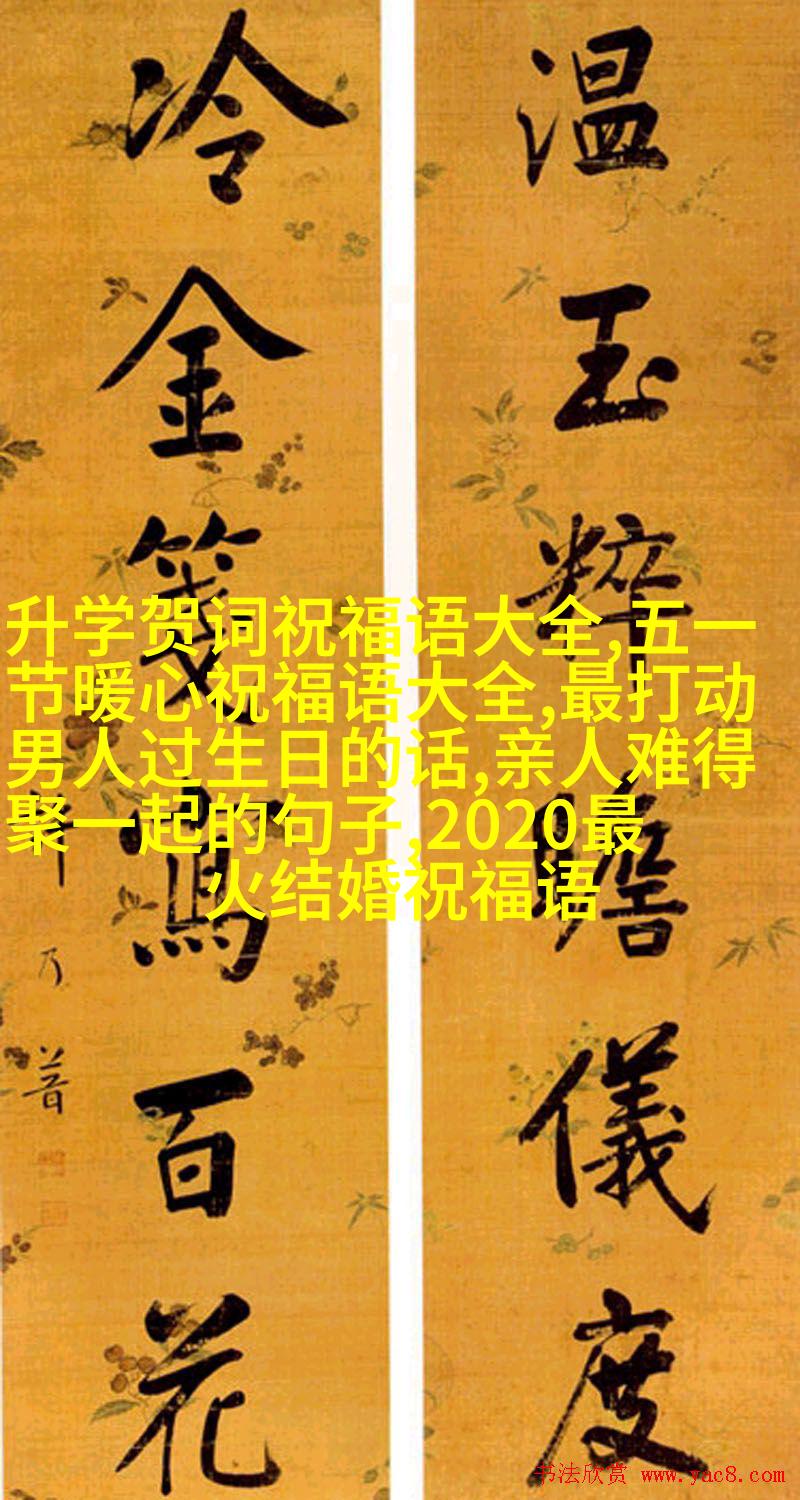 温玉粹瞻儀度
冷金箋寫百花
乃普
升学贺词祝福语大全,五一
节暖心祝福语大全,最打动
男人过生日的话,亲人难得
聚一起的句子,2020最
火结婚祝福语
书法欣赏 www.yac8.com